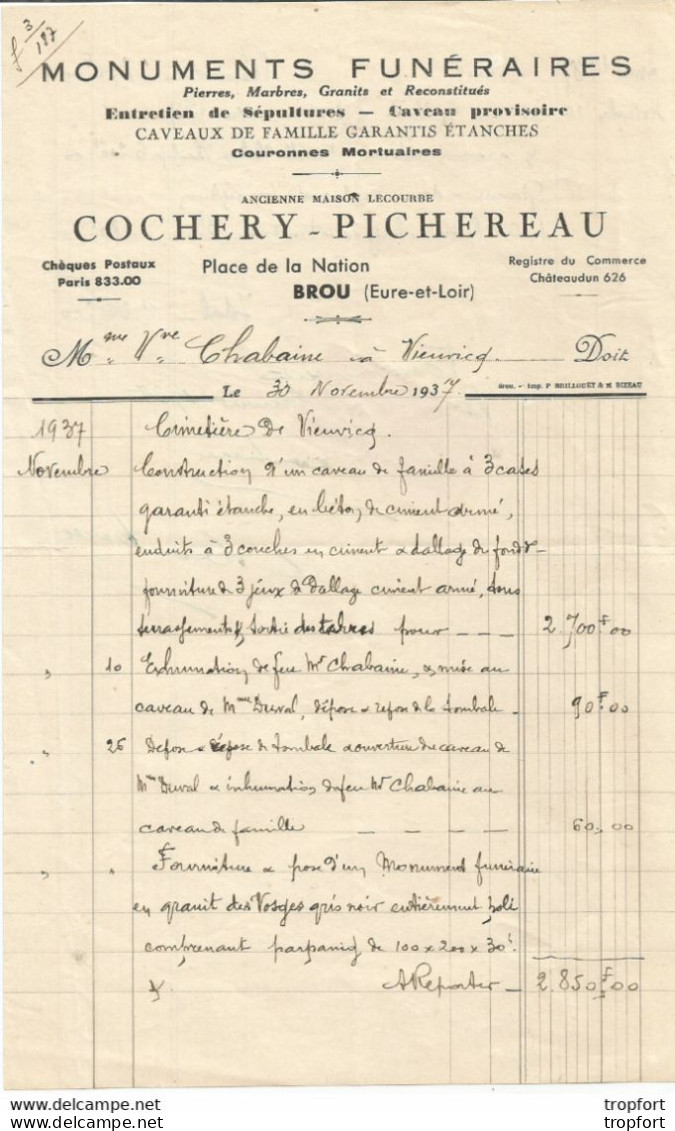 f 3/187
MONUMENTS FUNÉRAIRES
Pierres, Marbres, Granits et Reconstitués
Entretien de Sépultures — Caveau provisoire
CAVEAUX DE FAMILLE GARANTIS ÉTANCHES
Couronnes Mortuaires
ANCIENNE MAISON LECOURBE
COCHERY - PICHEREAU
Chèques Postaux
Paris 833.00
Place de la Nation
BROU (Eure-et-Loir)
Registre du Commerce
Châteaudun 626
Mme Vve Chabaine à Vieuvicq Doit
Brou. - Imp. P BRILLOUET & M. BIZEAU
Le 30 Novembre 1937
1937 Cimetière de Vieuvicq.
Novembre Construction d'un caveau de famille à 3 cases
garanti étanche, en béton, de ciment armé,
enduits à 3 couches en ciment & dallage de fond
fourniture de 3 jeux de dallage ciment armé, tous
terrassements & sortie des terres pour - - - 2.700f00
" 10 Exhumation de feu Mr Chabaine, & mise au
caveau de Mme Duval, dépose & repose de la tombale - 90f00
" 26 Dépose & repose de tombale & ouverture du caveau de
Mme Duval & inhumation de feu Mr Chabaine au
caveau de famille - - - - 60,00
" " Fourniture & pose d'un Monument funéraire
en granit des Vosges gris noir entièrement poli
comprenant parpaing de 100 x 200 x 30
A Reporter - 2.850f00
https://www.delcampe.net tropfort
https://www.delcampe.net tropfort